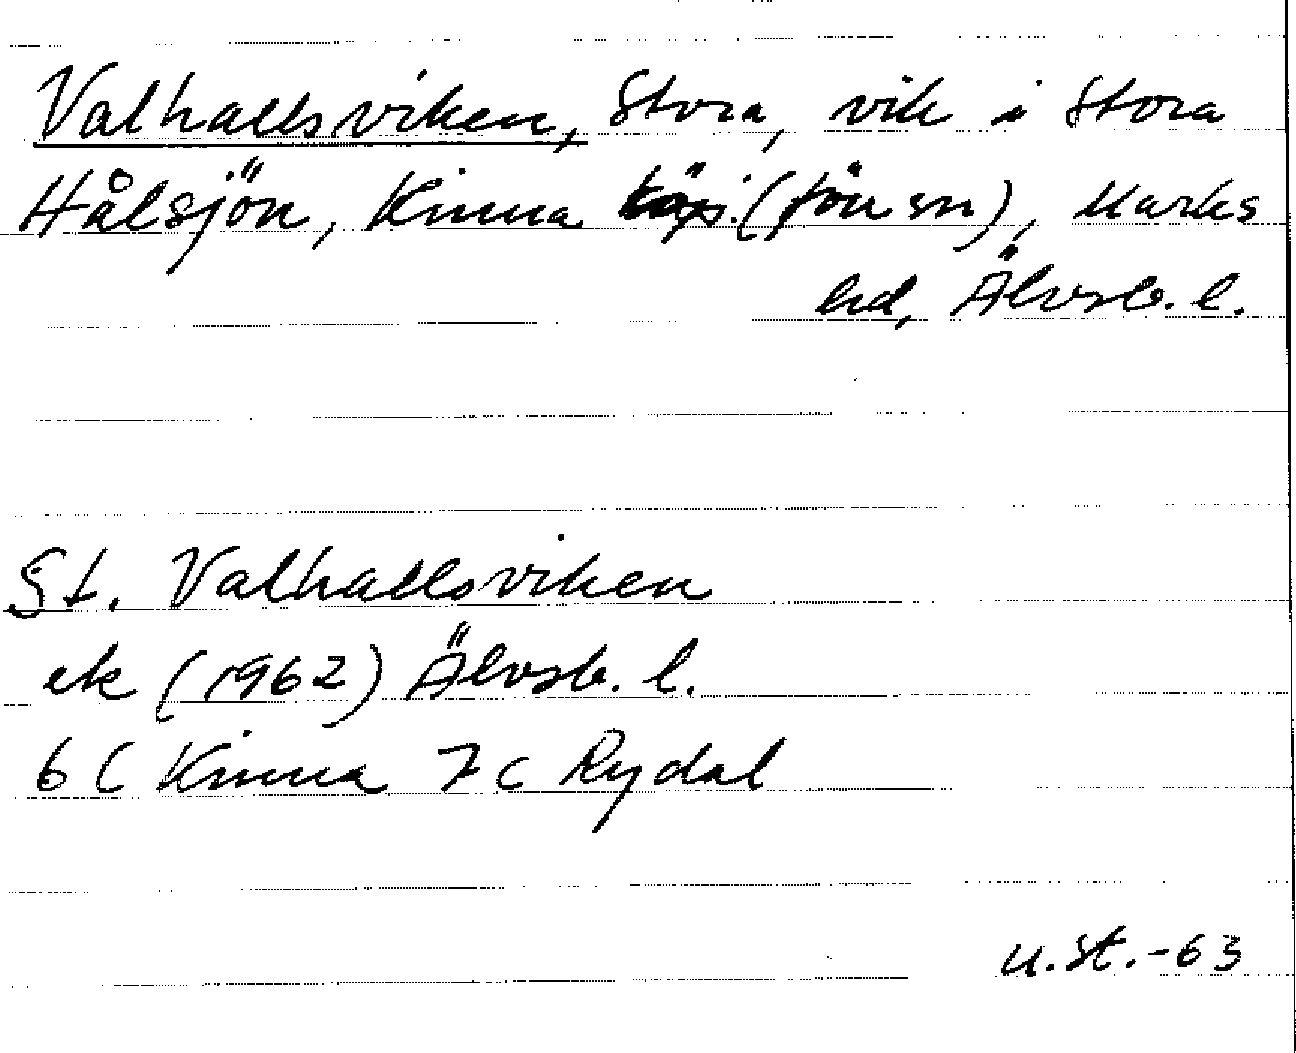 Valhallsviken, Stora, vik i Stora
Hålsjön, Kinna köp. (förr sn), Marks
hd, Älvsb. l.
St. Valhallsviken
ek (1962) Älvsb. l.
6 C Kinna 7 c Rydal
u.st.-63